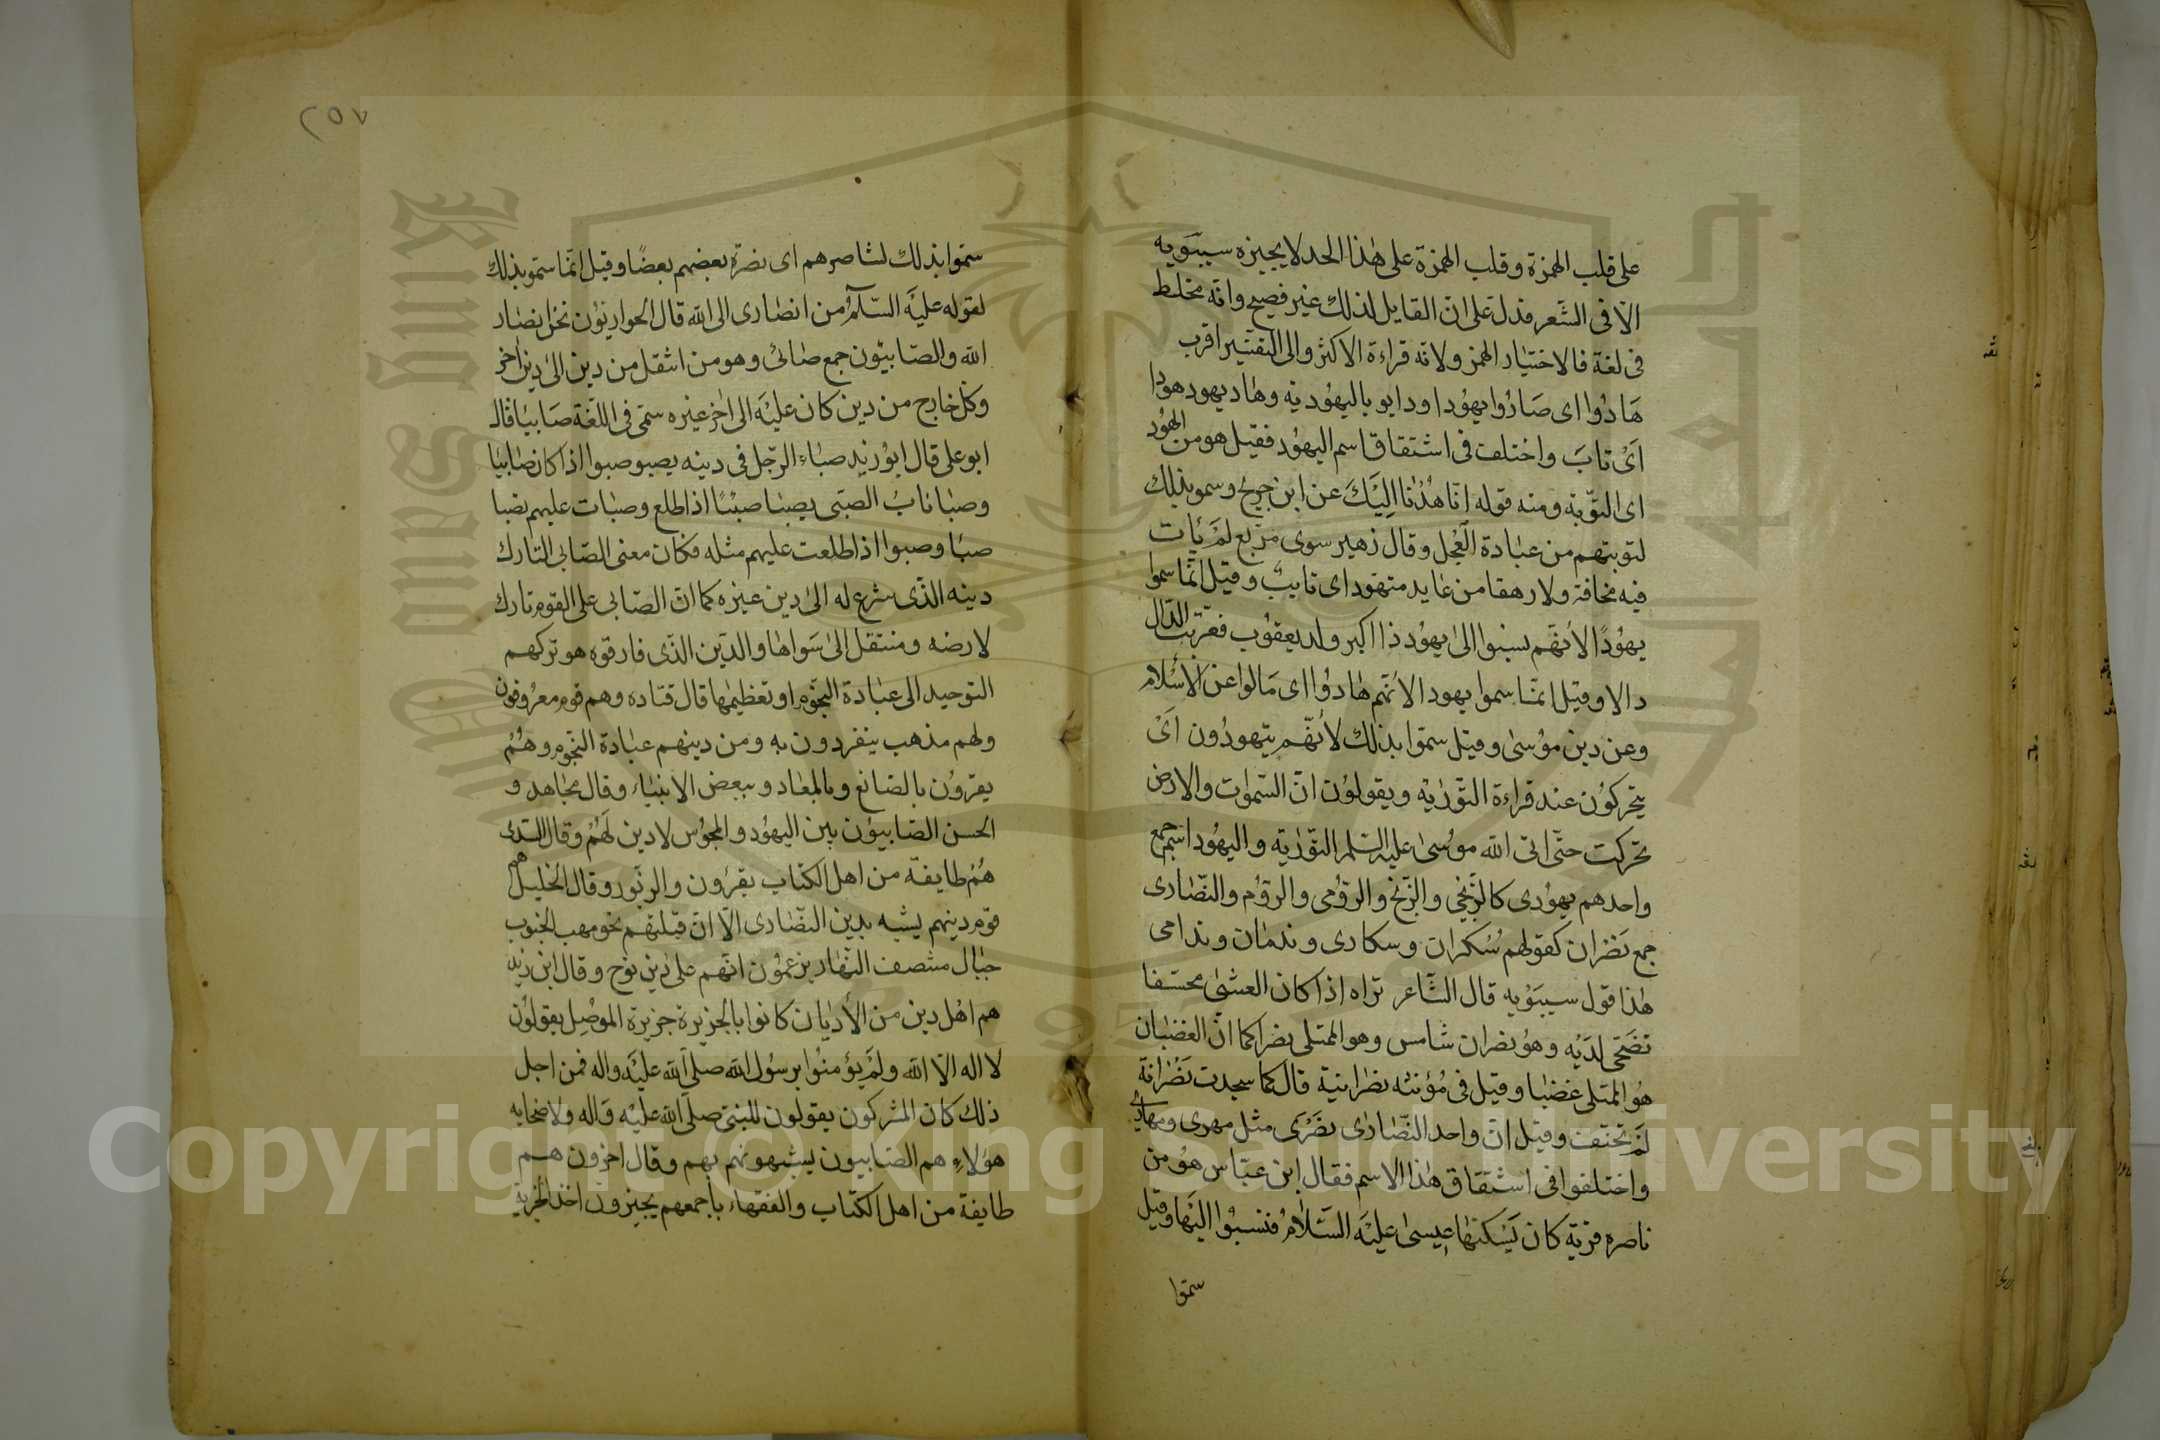 على قلب الهمزة وقلب الهمزة على هذا الحد لا يجيزه سيبويه
الا فى الشعر فدل على ان القايل لذلك غير فصيح وانه مخلط
فى لغة فالاختيار الهمز ولانه قراءة الاكثر والى التفتير اقرب
هَادُوا اى صَارُوا يهُودا ودايو باليهُودية وهاد يهود هودا
اَىْ تابَ واختلف فى اشتقاق اسم اليهُود فقيل هو من الهُود
اى التوّبة ومنه قوله انا هُدْنا اِليْكَ عن ابن جريح وسمو بذلك
لتوبتهم من عبادة العِجْل وقال زهير سوى مربع لمْ يَات
فيه مخافة ولا رهقا من عايد متهود اى تايبٌ وقيل انّما سموا
يهُودًا لأنهّم نسبوا الىٰ يهُوذ ذا اكبر ولد يعقوُب فعرّبت الذال
دالا وقيل انمّا سموا يهود لأنهّم هادوُا اى مَالوا عن الأسْلام
وعن دين موُسىٰ وقيل سموّا بذلك لأنهّم يتهودُون اَىْ
يتحركوُن عند قراءة التّورٰية ويقولوُن انّ السّموٰت والارض
تحركت حتّى اتى الله موُسىٰ عليه السّلم التوّرٰية واليهُود اسْم جمع
واحدهم يهوُدى كالزّنجى والزّنج والروُمى والروُم والنصّارى
جمع نَصْران كقولهم سُكران وسكارى وندمان وندامى
هٰذا قول سيبَوْيه قال الشّاعر تراه اذا كان العشىّ محتنفا
تضَحّى لدَيْه وهوُ نصران شامس وهو الممتلى نصرا كما انّ الغضبان
هوُ الممتلى غضبا وقيل فى مُؤنثه نصرانية قال كما سجدت نَصْرانة
لَمْ تحتنف وقيل انّ واحد النصّارى نصْرَى مثل مهرى ومهارى
واختلفوا فى اشتقاق هٰذا الاسم فقال ابن عبّاس هوُ من
ناصره قرية كان يَسْكنهَا عِيسىٰ عليْه السّلامُ فنسبوُا اليْها وقيل
سموّا
٢٥٧
سموّا بذلك لتناصرهم اى نصرة بعضهم بعضًا وقيل انّما سموّ بذلك
لقوله عليْه السّلمُ من انصارى الى الله قال الحواريّوُن نحن انصار
الله والصّابيّون جمع صابئ وهو من انتقل من دين الىٰ دين اٰخر
وكلّ خارج من دين كان عليْه الى اٰخر غيره سمّى فى اللّغة صَابيا قال
ابو على قال ابوُ زيد صباء الرّجل فى دينه يصبو صبوا اذا كان صابيا
وصبا نابُ الصبّى يصبا صبْئا اذا طلع وصبات عليهم تصبا
صبا وصبوا اذا طلعت عليهم مثله فكان معنى الصّابى التارك
دينه الذّى شرع له الىٰ دين غيره كما انّ الصّابى على القوم تارك
لارضه ومنتقل الىٰ سَواها والدّين الذّى فارقوه هو تركهم
التوحيد الى عبادة النّجوم او تعظيمها قال قتاده وهم قوم معرُوفون
ولهم مذهب ينفردون به ومن دينهم عبادة النّجوم وهُمْ
يقرّوُن بالصانع وبالمعاد وببعض الانبياء وقال مجاهد و
الحسن الصّابيوُن بين اليهُود والمجوُس لا دين لَهُمْ وقال السّدىّ
هُمْ طايفة من اهل الكتاب يقرؤن والزبور وقال الخليل هم
قوم دينهم يشبه بدين النصّارى الّا انّ قبلتهم نحو مهب الجنوب
حبال منتصف النّهار يزعموُن انّهم علىٰ دين نوُح وقال ابن زيد
هم اهْل دين من الأديان كانوا بالجزيرة جزيرة الموْصِل يقولوُن
لا اله الّا الله ولَمْ يؤمنوُا برسوُل الله صلّى الله عليْه واله فمن اجل
ذلك كان المشركون يقولون للنبىّ صلّى الله عليْه واله ولاصحابه
هؤلاء هم الصّابيون يشبهونهم بهم وقال اخرون هم
طايفة من اهل الكتاب والفقهاء باجمعهم يجيزون اخذ الجزية
Copyright © King Saud University